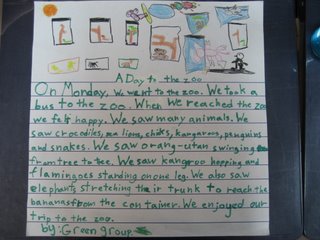 A Day to the zoo
On Monday, We went to the zoo. We took a
bus to the zoo. When we reached the zoo
we felt happy. We saw many animals. We
saw crocodiles, sea lions, chiks, kangaroos, penguins
and snakes. We saw orang-utan swinging
from tree to tee. We saw kangroo hopping and
flamingoes standing on one leg. We also saw
elephants stretching their trunk to reach the
bananas from the container. We enjoyed our
trip to the zoo.
by: Green group